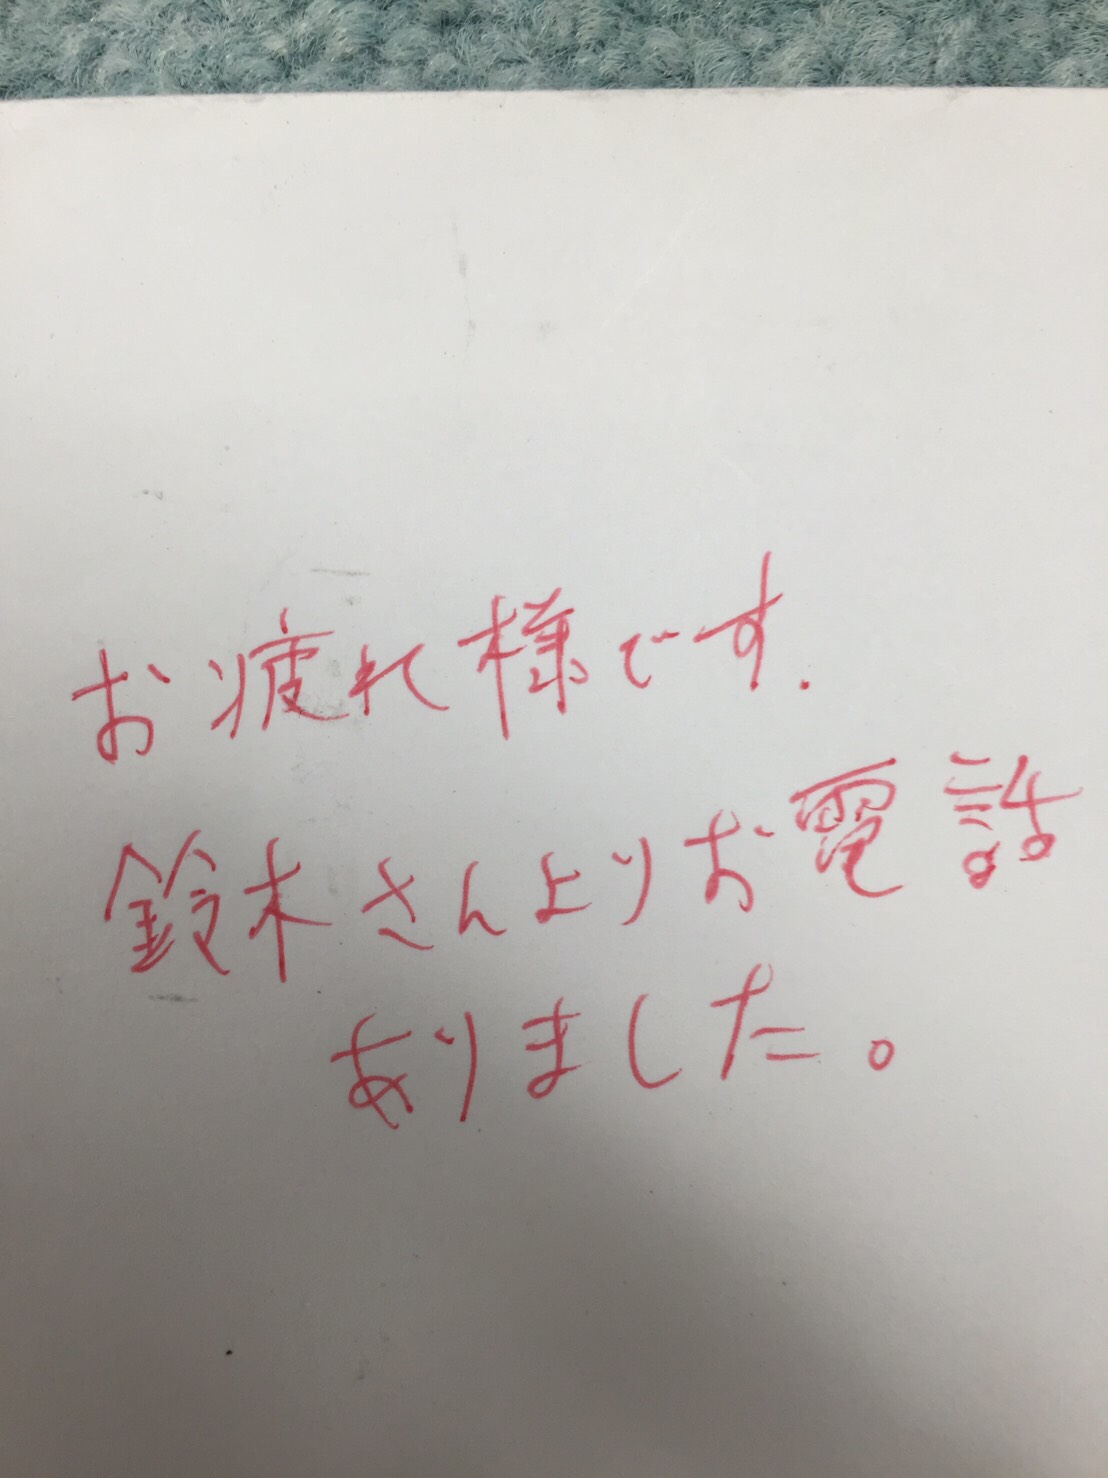 お疲れ様です.
鈴木さんよりお電話
ありました。